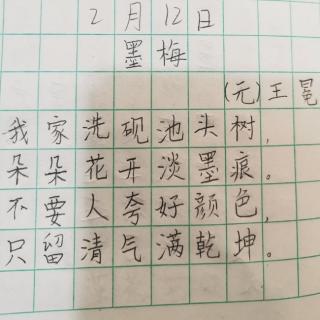 2月12日
墨梅
(元)王冕
我家洗砚池头树,
朵朵花开淡墨痕。
不要人夸好颜色,
只留清气满乾坤。